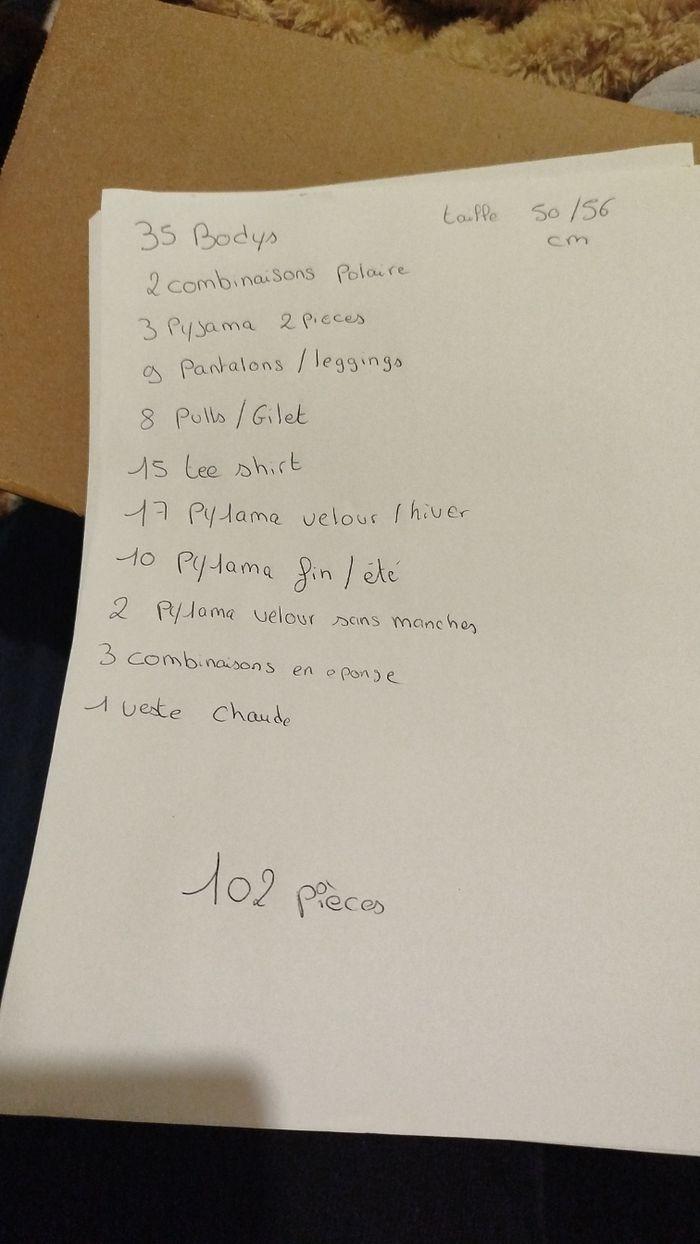 35 Bodys
taille 50/56
cm
2 combinaisons Polaire
3 Pyjama 2 pieces
9 Pantalons / leggings
8 Pulls / Gilet
15 tee shirt
17 Pyjama velour / hiver
10 Pyjama fin / été
2 Pyjama velour sans manches
3 combinaisons en eponge
1 veste chaude
102 pièces